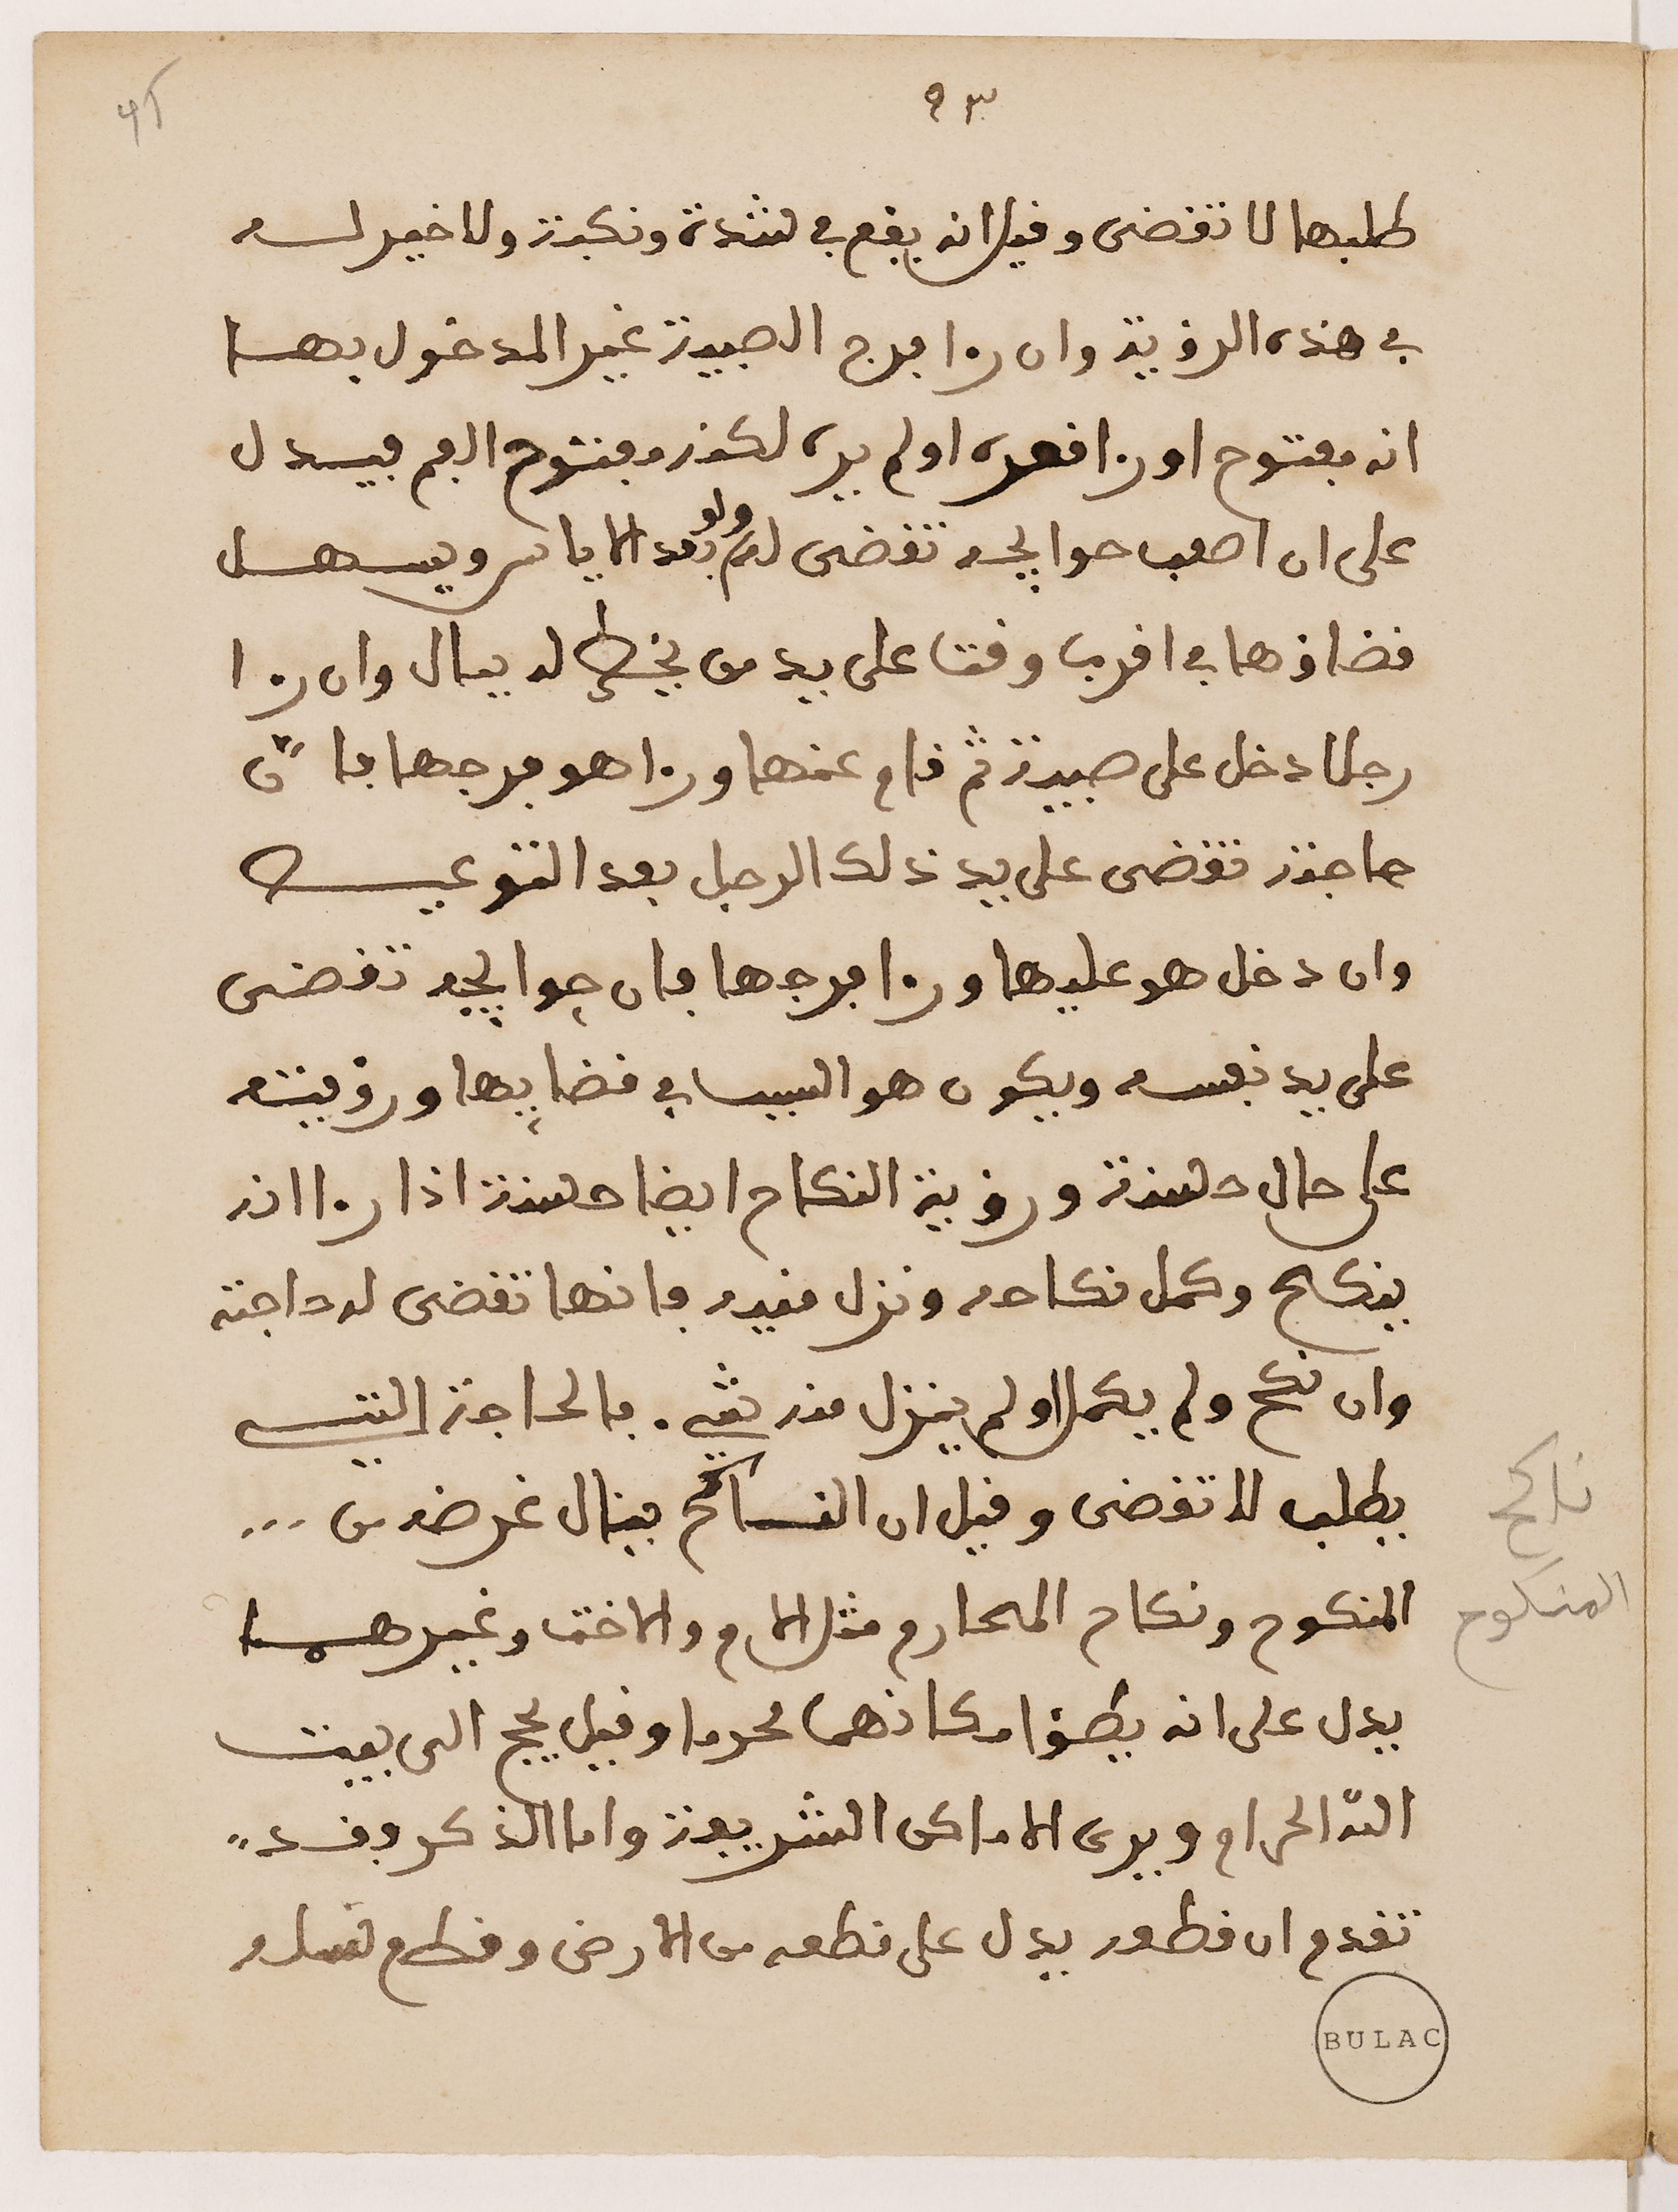 ٩٣
طلبها لا تقضى وقيل انه يقع في شدة ونكبة ولا خير له
في هذه الرؤية وان را فرج الصبية غير المدخول بها
انه مفتوح او را قعره او لم يره لكنه مفتوح الفم فيدل
على ان اصعب حوايجه تقضى له ولو بعد الاياس ويسهل
قضاؤها في اقرب وقت على يد من يخطر له ببال وان را
رجلا دخل على صبية ثم قام عنها ورا هو فرجها فان
حاجته تقضى على يد ذلك الرجل بعد
وان دخل هو عليها ورا فرجها فان حوايجه تقضى
على يد نفسه ويكون هو السبب في قضايها ورؤيته
على حال حسنة ورؤية النكاح ايضا حسنة اذا را انه
ينكح وكمل نكاحه ونزل منيه فانها تقضى له حاجته
وان نكح ولم يكمل او لم ينزل منه شيء. فالحاجة التي
يطلب لا تقضى وقيل ان الناكح ينال غرضه من ...
المنكوح ونكاح المحارم مثل الام والاخت وغيرهما
يدل على انه يطؤ مكانهما محرما وقيل يحج الى بيت
الله الحرام ويرى الاماكن الشريفة واما الذكر وقد
تقدم ان قطعه يدل على قطعه من الارض وقطع نسله
ناكح
المنكوح
BULAC